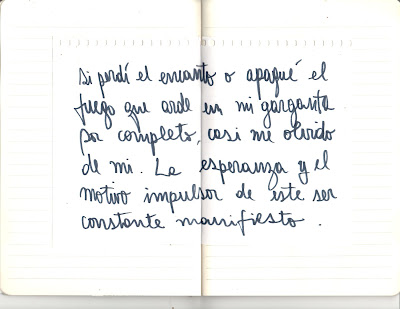 si perdí el encanto o apagué el
fuego que arde en mi garganta
por completo, casi me olvido
de mi. La esperanza y el
motivo impulsor de este ser
constante manifiesto.